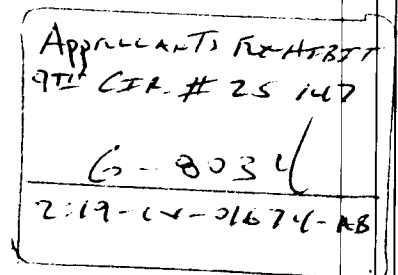 APPELLANTS EXHIBIT
9TH CIR. # 25 147
G-8034
2:19-CV-01674-AB